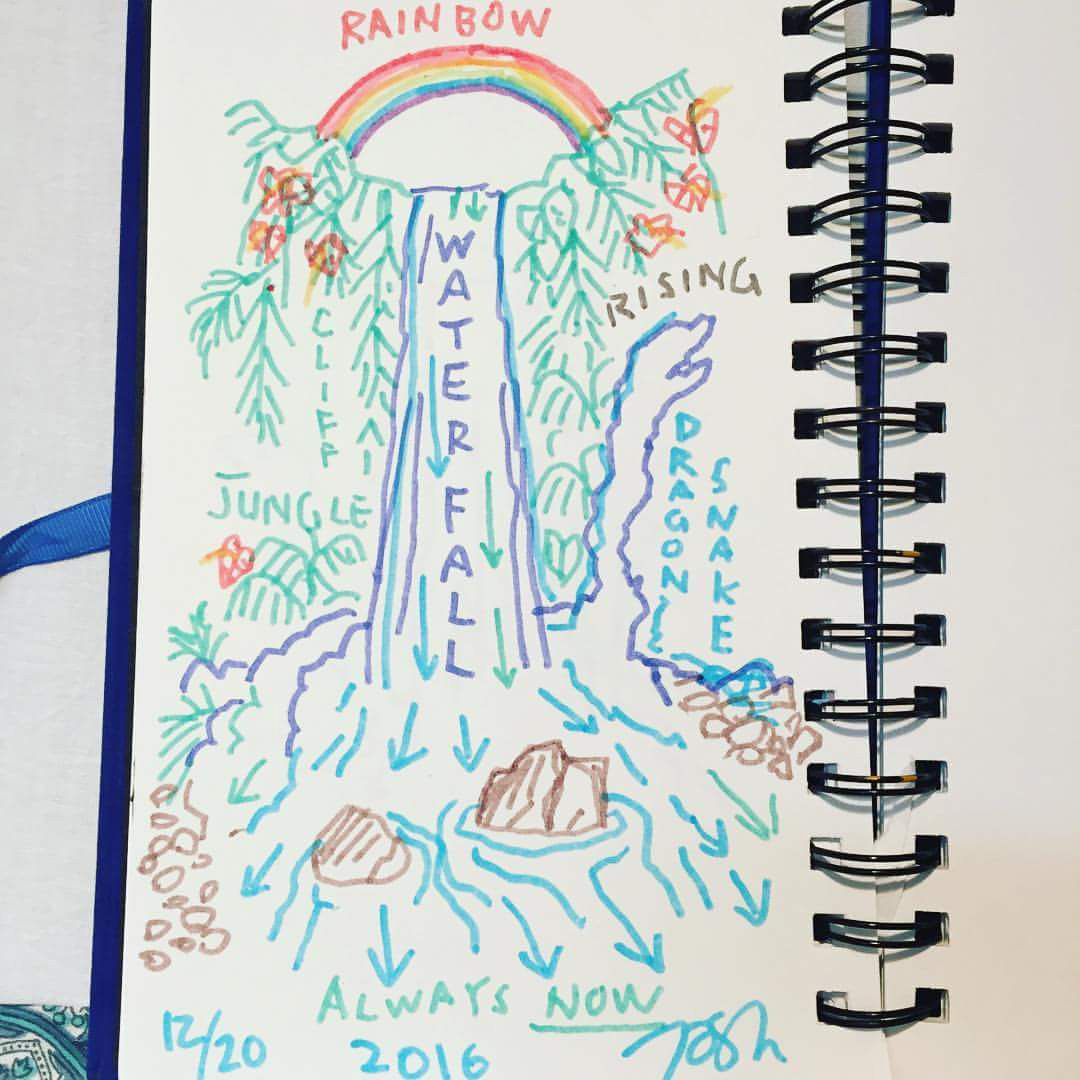 RAINBOW
WATERFALL
RISING
CLIFF
DRAGON
SNAKE
JUNGLE
ALWAYS NOW
12/20 2016 Josh